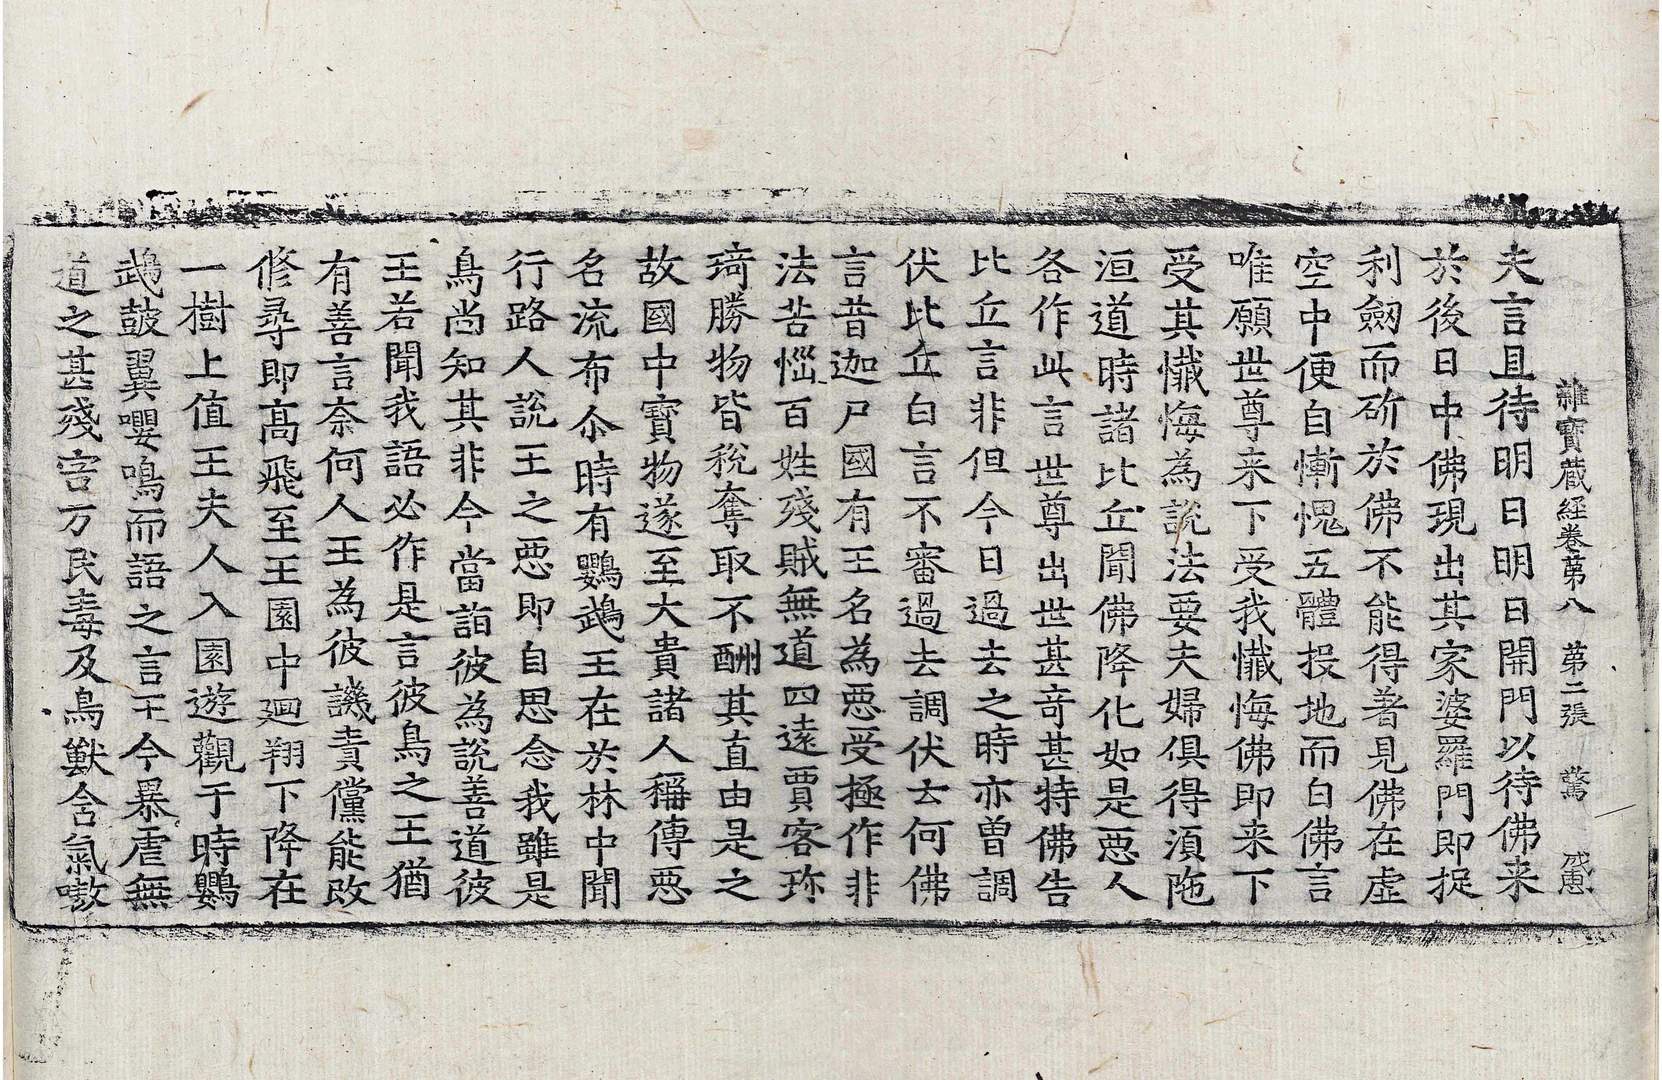 雜寶藏經卷第八　第二張　驚　戚愚
夫言且待明日明日開門以待佛来
於後日中佛現出其家婆羅門即捉
利劒而斫於佛不能得著見佛在虛
空中便自慚愧五體投地而白佛言
唯願世尊来下受我懺悔佛即来下
受其懺悔為說法要夫婦俱得湏陁
洹道時諸比丘聞佛降化如是惡人
各作此言世尊出世甚竒甚特佛告
比丘言非但今日過去之時亦曽調
伏比丘白言不審過去調伏云何佛
言昔迦尸國有王名為惡受極作非
法苦惱百姓殘賊無道四遠賈客珎
琦勝物皆稅奪取不酬其直由是之
故國中寳物遂至大貴諸人稱傳惡
名流布尒時有鸚鵡王在於林中聞
行路人說王之惡即自思念我雖是
鳥尚知其非今當詣彼為說善道彼
王若聞我語必作是言彼鳥之王猶
有善言奈何人王為彼譏責儻能改
修尋即髙飛至王園中廻翔下降在
一樹上值王夫人入園遊觀于時鸚
鵡鼓翼嚶鳴而語之言王今暴虐無
道之甚殘害万民毒及鳥獸含氣嗷